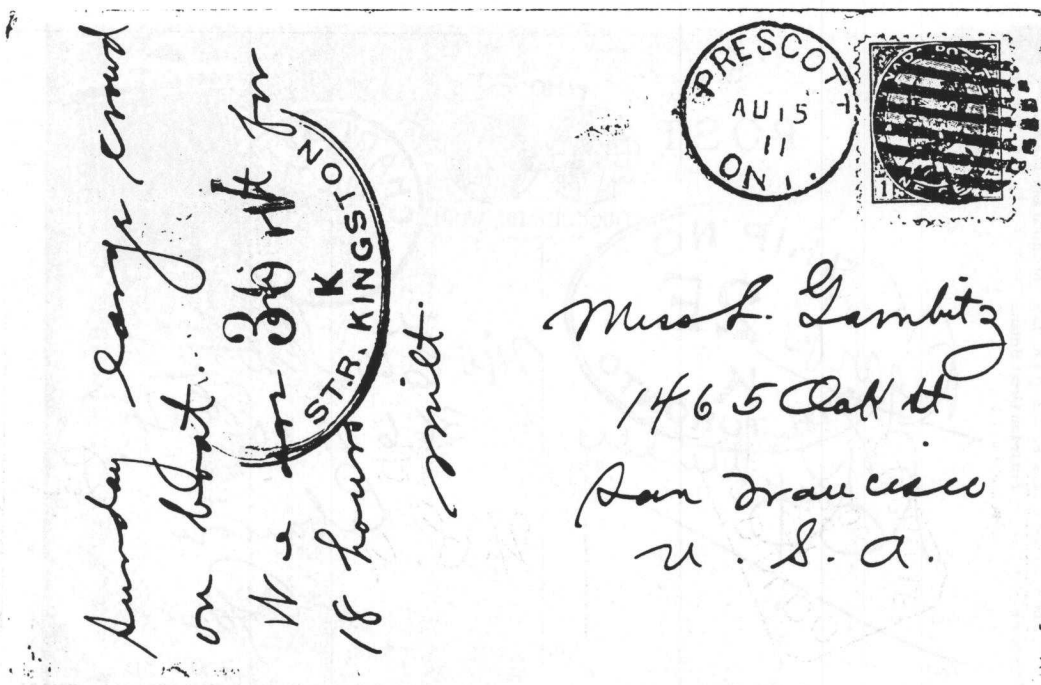 Sunday - Large crowd
on boat.
W -
18 hours
Milt.
STR. KINGSTON
K
PRESCOTT
AU 15
11
ONT.
1
Miss L. Gambitz
1465 Oak St
San Francisco
U. S. A.